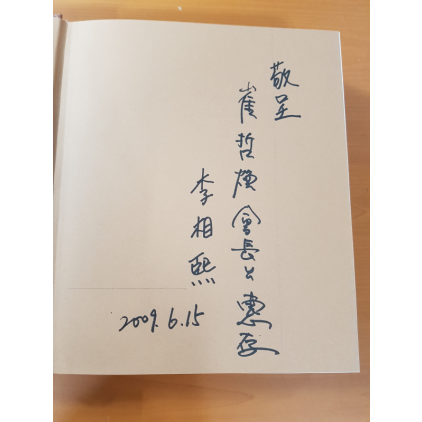 敬呈
崔哲煥會長公惠存
李相熙
2009. 6. 15